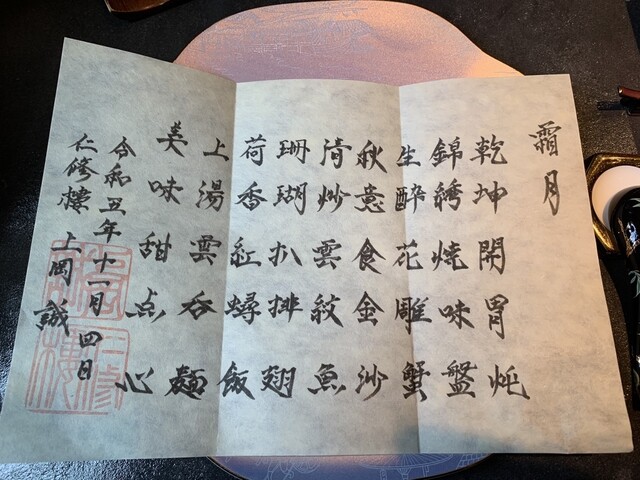 霜月
乾坤開胃炖
錦綉焼味盤
生酔花雕蟹
秋意食金沙
清炒雲紋魚
珊瑚扒排翅
荷香紅蟳飯
上湯雲呑麺
美味甜点心
令和丑年十一月四日
仁修樓 上岡誠